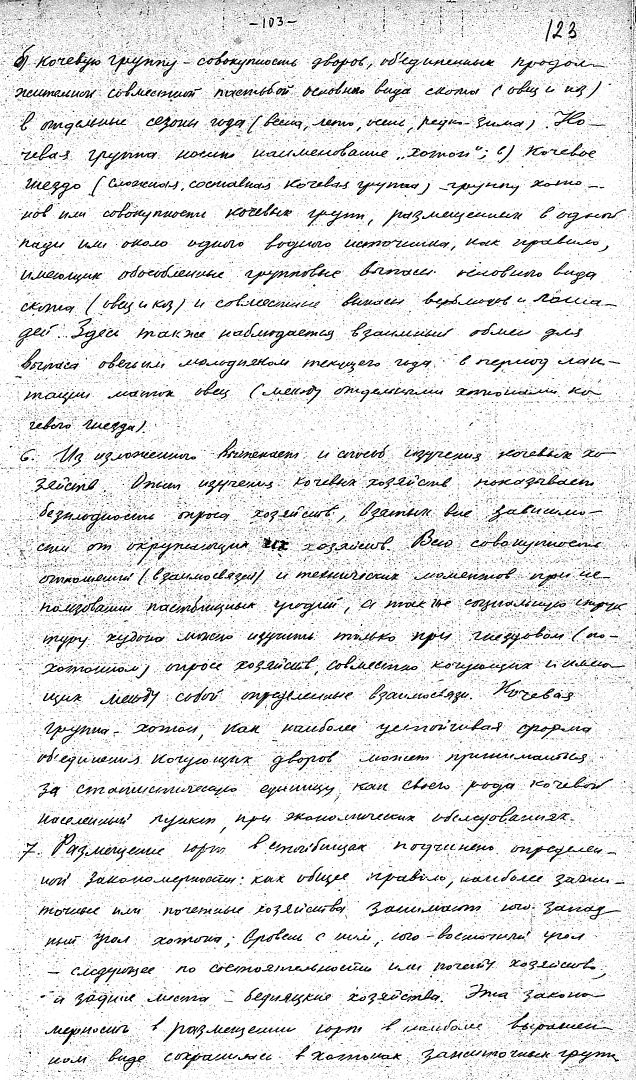 -103-
123
б) кочевую группу - совокупность дворов, об'единенных продол-
жительной совместной пастьбой основного вида скота (овец и коз)
в отдельные сезоны года (весна, лето, осень, редко-зима). Ко-
чевая группа носит наименование „хотон"; в) Кочевое
гнездо (сложная, составная кочевая группа) - группу хото-
нов или совокупности кочевых групп, размещенных в одной
пади или около одного водного источника, как правило,
имеющих обособленные групповые выпасы основного вида
скота (овец и коз) и совместные выпасы верблюдов и лоша-
дей. Здесь также наблюдается взаимный обмен для
выпаса овечьим молодняком текущего года в период лак-
тации маток овец (между отдельными хотонами ко-
чевого гнезда).
6. Из изложенного вытекает и способ изучения кочевых хо-
зяйств. Опыт изучения кочевых хозяйств показывает
безплодность опроса хозяйств, взятых вне зависимо-
сти от окружающих их хозяйств. Всю совокупность
отношений (взаимосвязей) и технических моментов при ис-
пользовании пастбищных угодий, а также социальную струк
туру худона можно изучить только при гнездовом (по-
хотонном) опросе хозяйств, совместно кочующих и имею-
щих между собой определенные взаимосвязи. Кочевая
группа - хотон, как наиболее устойчивая форма
об'единения кочующих дворов может приниматься
за статистическую единицу, как своего рода кочевой
населенный пункт, при экономических обследованиях.
7. Размещение юрт в стойбищах подчинено определен-
ной закономерности: как общее правило, наиболее зажи-
точные или почетные хозяйства занимают юго-запад
ный угол хотона; вровень с ним, юго-восточный угол
- следующее по состоятельности или почету хозяйство,
а задние места - бедняцкие хозяйства. Эта законо
мерность в размещении юрт в наиболее выражен-
ном виде сохранилась в хотонах зажиточных групп